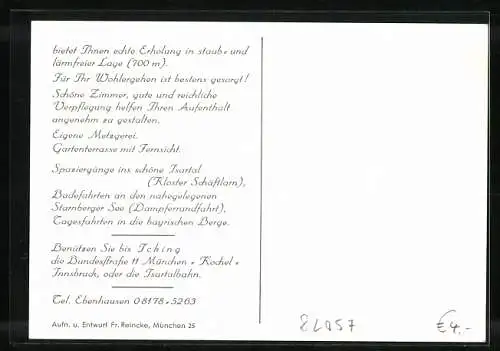 bietet Ihnen echte Erholung in staub- und
lärmfreier Lage (700 m).
Für Ihr Wohlergehen ist bestens gesorgt!
Schöne Zimmer, gute und reichliche
Verpflegung helfen Ihren Aufenthalt
angenehm zu gestalten.
Eigene Metzgerei.
Gartenterrasse mit Fernsicht.
Spaziergänge ins schöne Isartal
(Kloster Schäftlarn),
Badefahrten an den nahegelegenen
Starnberger See (Dampferrundfahrt),
Tagesfahrten in die bayrischen Berge.
Benützen Sie bis Icking
die Bundesstraße 11 München - Kochel -
Innsbruck, oder die Isartalbahn.
Tel. Ebenhausen 08178 - 5263
Aufn. u. Entwurf Fr. Reincke, München 25
82057
€4,-